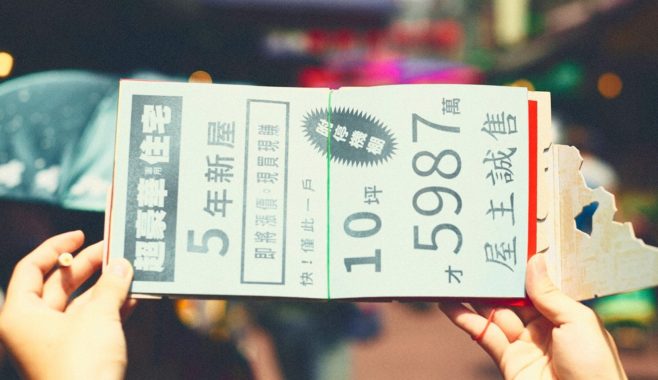 超豪華住宅
5年新屋
即將漲價。現買現賺
快!僅此一戶
附停機棚
10坪
才5987萬
屋主誠售